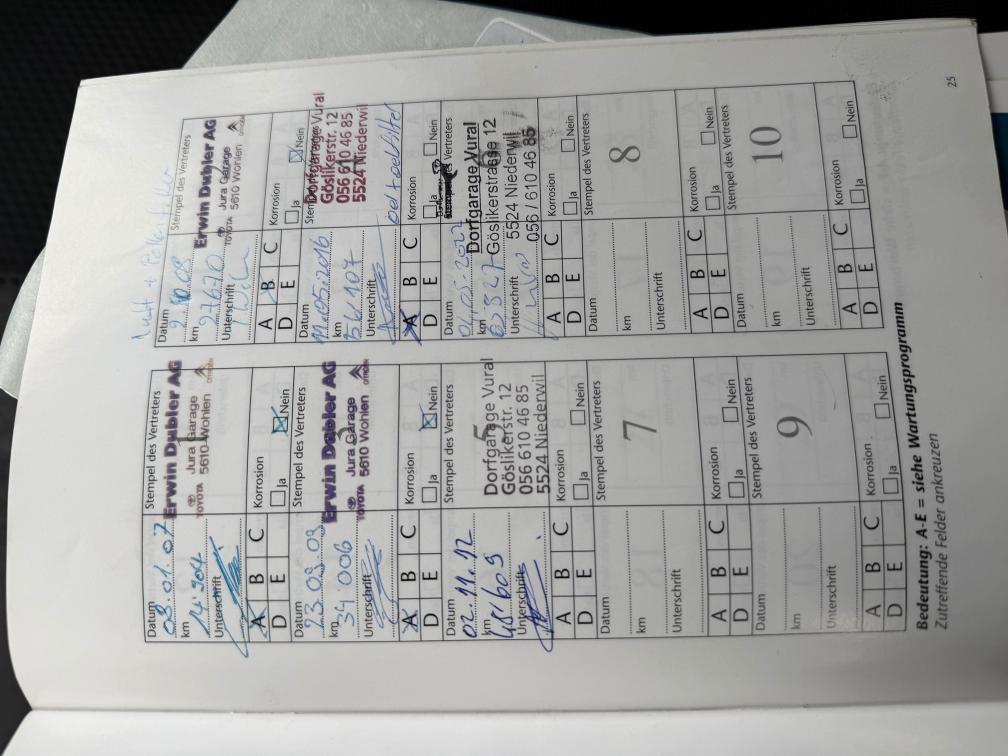 Datum
Stempel des Vertreters
03.01.07
Erwin Dubler AG
km
14.904
Jura Garage
TOYOTA 5610 Wohlen CITROËN
Unterschrift
A B C
Korrosion
D E
Ja Nein
Datum
Stempel des Vertreters
23.09.09
Erwin Dubler AG
km
34 006
3
Jura Garage
TOYOTA 5610 Wohlen CITROËN
Unterschrift
A B C
Korrosion
D E
Ja Nein
Datum
Stempel des Vertreters
02.11.12
5
Dorfgarage Vural
km
Göslikerstr. 12
056 610 46 85
Unterschrift
5524 Niederwil
A B C
Korrosion
D E
Ja Nein
Datum
Stempel des Vertreters
km
7
Unterschrift
A B C
Korrosion
D E
Ja Nein
Datum
Stempel des Vertreters
km
9
Unterschrift
A B C
Korrosion
D E
Ja Nein
Datum
Stempel des Vertreters
Erwin Dubler AG
km
27670
Jura Garage
TOYOTA 5610 Wohlen CITROËN
Unterschrift
A B C
Korrosion
D E
Ja Nein
Datum
11.05.2016
Dorfgarage Vural
km
56'107
Göslikerstr. 12
056 610 46 85
Unterschrift
5524 Niederwil
A B C
Korrosion
D E
Ja Nein
Datum
Dorfgarage Vural
km
63327
Göslikerstrasse 12
5524 Niederwil
Unterschrift
056 / 610 46 85
A B C
Korrosion
D E
Ja Nein
Datum
Stempel des Vertreters
km
8
Unterschrift
A B C
Korrosion
D E
Ja Nein
Datum
Stempel des Vertreters
km
10
Unterschrift
A B C
Korrosion
D E
Ja Nein
Bedeutung: A-E = siehe Wartungsprogramm
Zutreffende Felder ankreuzen
25